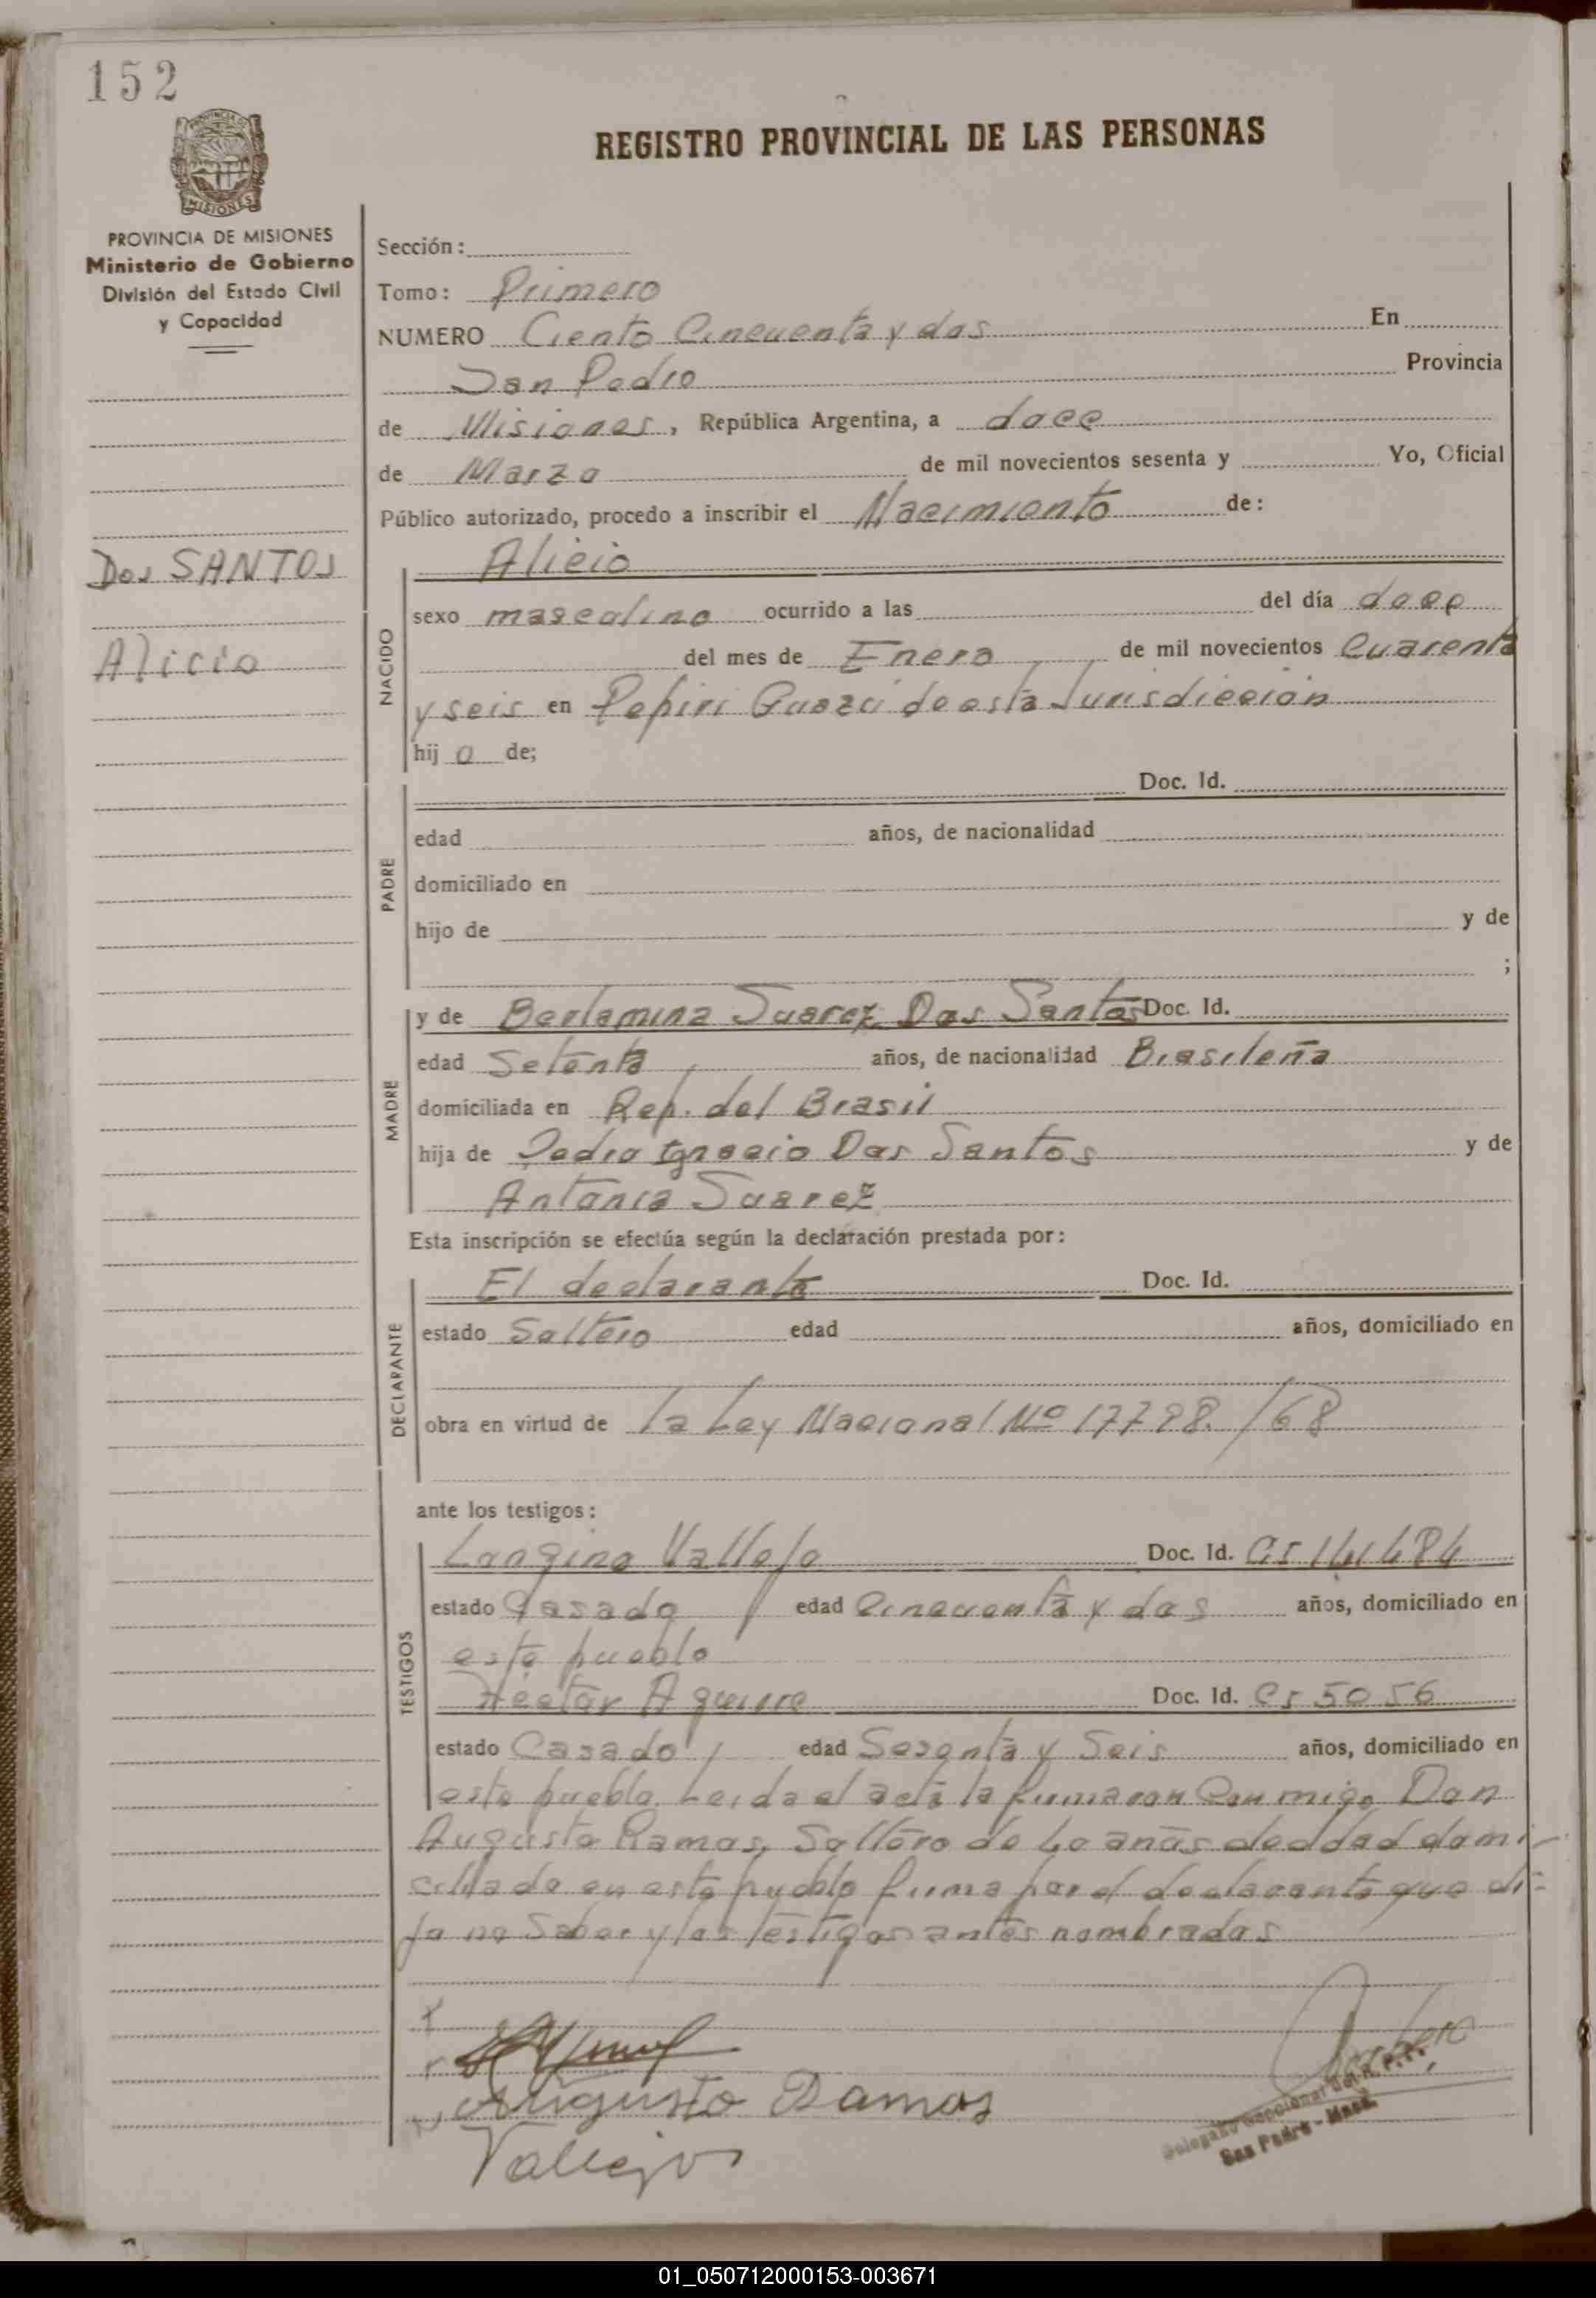 152
REGISTRO PROVINCIAL DE LAS PERSONAS
PROVINCIA DE MISIONES
Ministerio de Gobierno
División del Estado Civil
y Capacidad
Dos SANTOS
Alicio
Sección:
Tomo: Primero
NUMERO Ciento Cincuenta y dos En
San Pedro Provincia
de Misiones, República Argentina, a doce
de Marzo de mil novecientos sesenta y Yo, Oficial
Público autorizado, procedo a inscribir el Nacimiento de:
NACIDO
Alicio
sexo masculino ocurrido a las del día doce
del mes de Enero de mil novecientos Cuarenta
y seis en Pepiri Guazú de esta Jurisdiccion
hij o de;
PADRE
Doc. Id.
edad años, de nacionalidad
domiciliado en
hijo de y de
;
MADRE
y de Berlamina Suarez Dos Santos Doc. Id.
edad Setenta años, de nacionalidad Brasileña
domiciliada en Rep. del Brasil
hija de Pedro Ignacio Dos Santos y de
Antonia Suarez
Esta inscripción se efectúa según la declaración prestada por:
DECLARANTE
El declarante Doc. Id.
estado Soltero edad años, domiciliado en
obra en virtud de la Ley Nacional Nº 17798/68
ante los testigos:
TESTIGOS
Longino Vallejo Doc. Id.
estado Casado edad Cincuenta y dos años, domiciliado en
este pueblo
Hector Aguirre Doc. Id. Cr 5056
estado Casado edad Sesenta y Seis años, domiciliado en
este pueblo. Leida el acta la firmaron Con migo Don
Augusto Ramos, Soltero de años de edad domi-
ciliado en este pueblo firma por el declarante que di-
jo no Saber y los testigos antes nombrados
Augusto Ramos
Vallejos
Delegado Seccional del R.P.P.
San Pedro - Mnes.
01_050712000153-003671